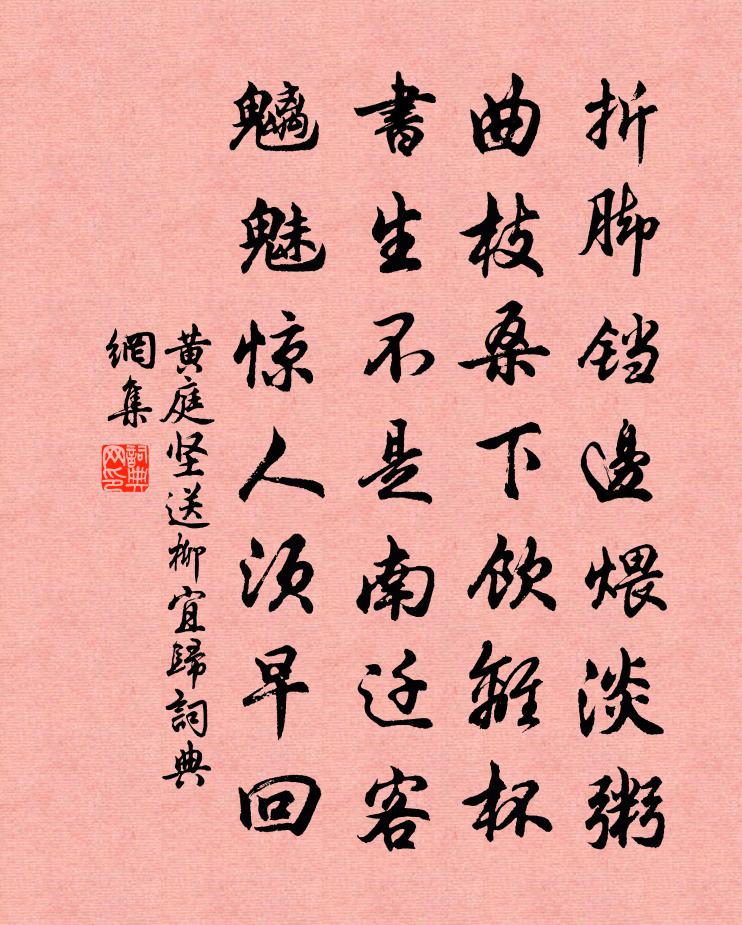 折脚铛邊煨淡粥
曲枝桑下饮離杯
書生不是南迁客
魑魅惊人须早回
黄庭坚送柳宜歸詞典
網集
詞典
网印